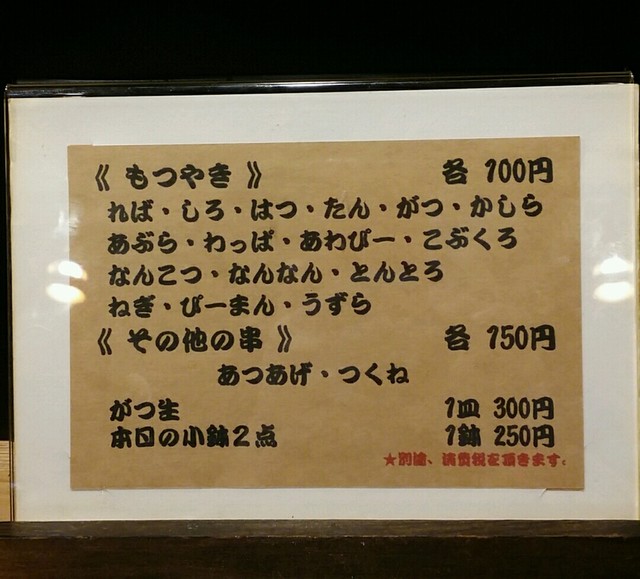 《 もつやき 》 各 100円
ればﾞ・しろ・はつ・たん・がつ・かしら
あぶら・わっぱ・あわぴー・こぶくろ
なんこつ・なんなん・とんとろ
ねぎ・ぴーまん・うずら
《 その他の串 》 各 150円
あつあげ・つくね
がつ生 1皿 300円
本日の小鉢2点 1鉢 250円
★別途、消費税を頂きます。